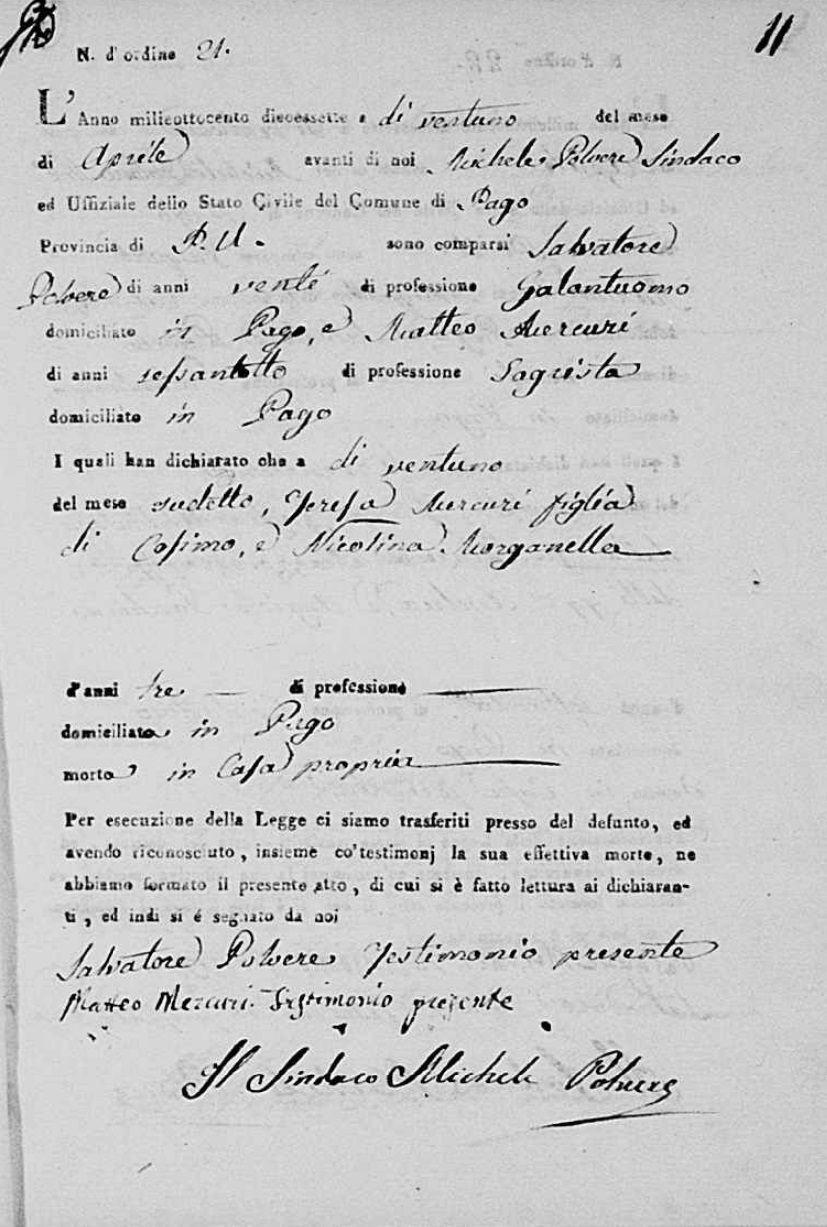 11
N. d'ordine 21.
L'Anno milleottocento diecessette a dì ventuno del mese
di Aprile avanti di noi Michele Polvere Sindaco
ed Uffiziale dello Stato Civile del Comune di Pago
Provincia di P. U. sono comparsi Salvatore
Polvere di anni venti di professione Galantuomo
domiciliato in Pago, e Matteo Mercuri
di anni sessantotto di professione Sagrista
domiciliato in Pago
I quali han dichiarato che a dì ventuno
del mese sudetto, Teresa Mercuri figlia
di Cosimo, e Nicolina Morganella
d'anni tre di professione
domiciliata in Pago
morta in Casa propria
Per esecuzione della Legge ci siamo trasferiti presso del defunto, ed
avendo riconosciuto, insieme co'testimonj la sua effettiva morte, ne
abbiamo formato il presente atto, di cui si è fatto lettura ai dichiaran-
ti, ed indi si é segnato da noi
Salvatore Polvere Testimonio presente
Matteo Mercuri Testimonio presente
Il Sindaco Michele Polvere